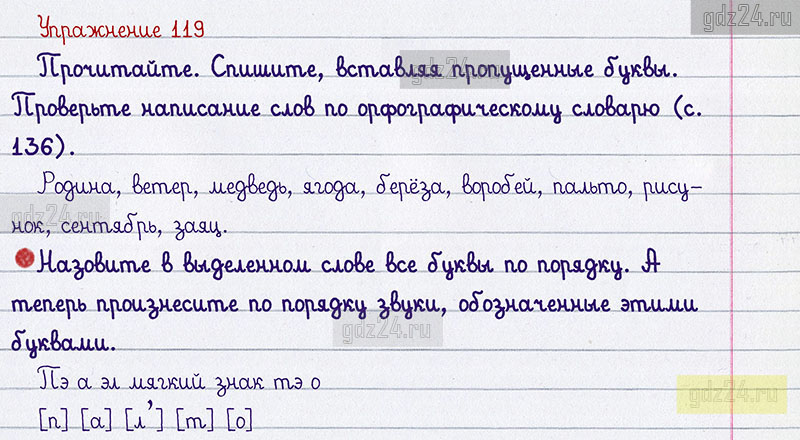 gdz24.ru
Упражнение 119
Прочитайте. Спишите, вставляя пропущенные буквы.
gdz24.ru
Проверьте написание слов по орфографическому словарю (с.
136).
Родина, ветер, медведь, ягода, берёза, воробей, пальто, рису-
gdz24.ru
нок, сентябрь, заяц.
Назовите в выделенном слове все буквы по порядку. А
теперь произнесите по порядку звуки, обозначенные этими
gdz24.ru
буквами.
Пэ а эл мягкий знак тэ о
gdz24.ru
[п] [а] [л’] [т] [о]